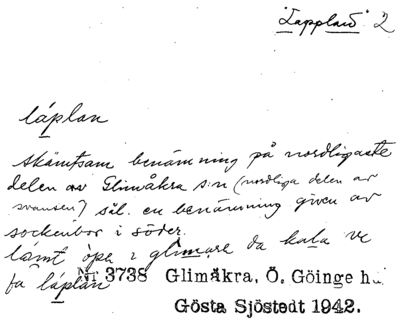 "Lappland" 2
láplan
skämtsam benämning på nordligaste
delen av Glimåkra s:n (nordliga delen av
svansen) sål. en benämning given av
sockenbor i söder.
låmt ópe i glimare da kala ve
fa láplan
Nr 3738 Glimåkra, Ö. Göinge h.
Gösta Sjöstedt 1942.